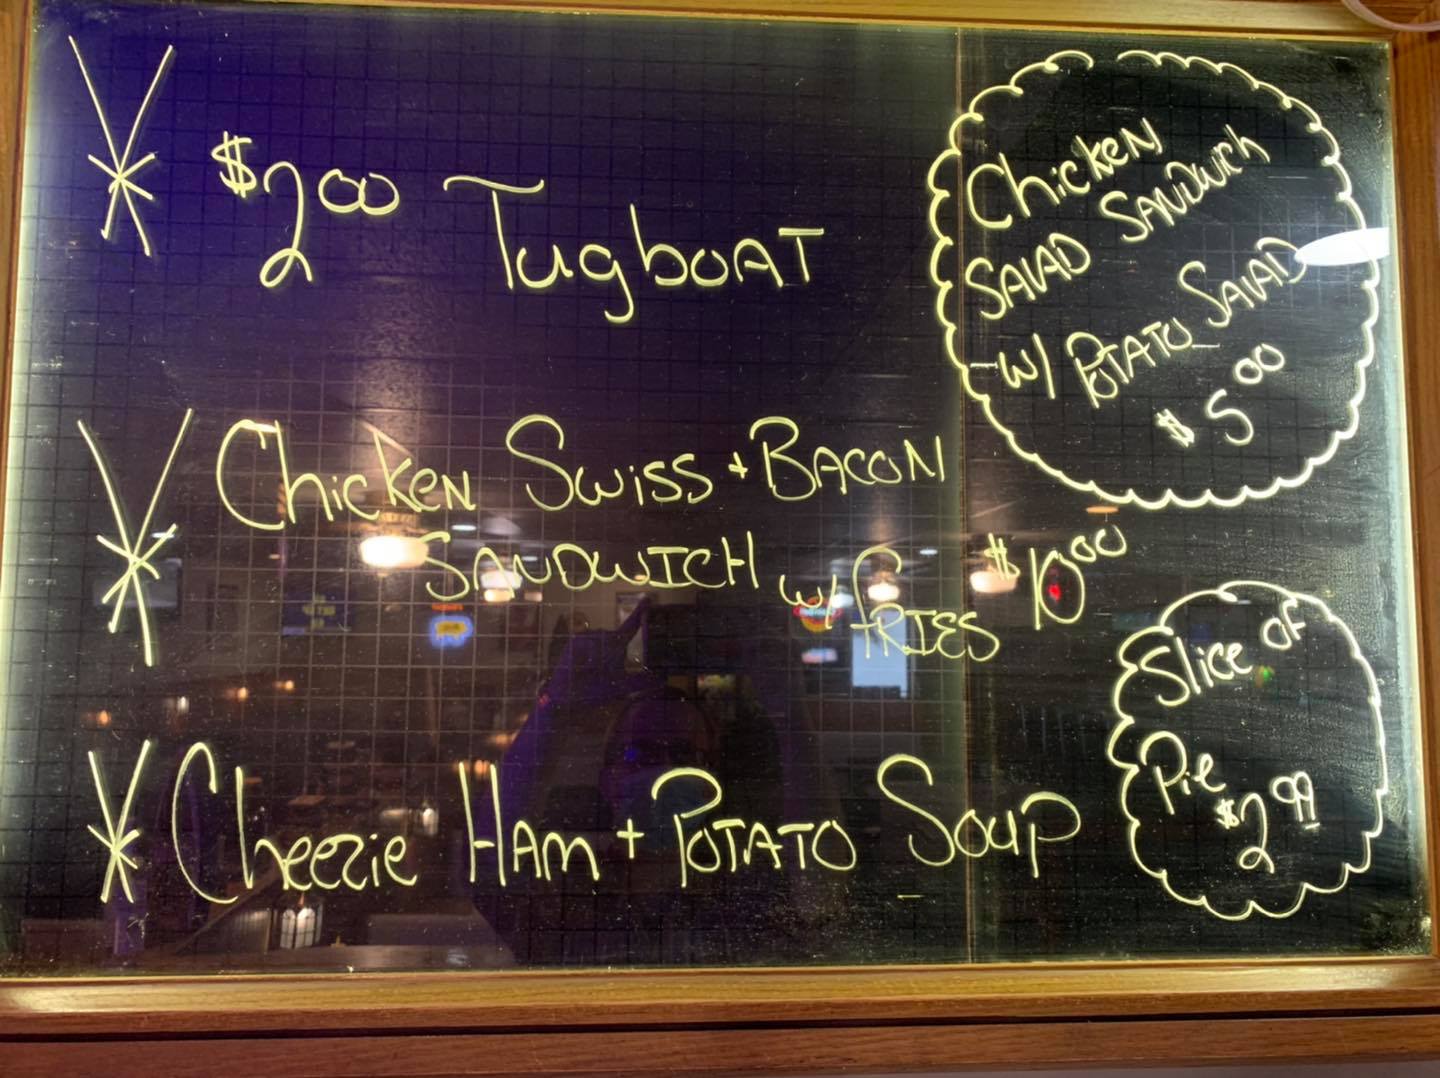 $2.00 Tugboat
Chicken Swiss + Bacon
Sandwich w/ Fries $10.00
Cheezie Ham + Potato Soup
Chicken
Salad Sandwich
w/ Potato Salad
$5.00
Slice of
Pie
$2.99